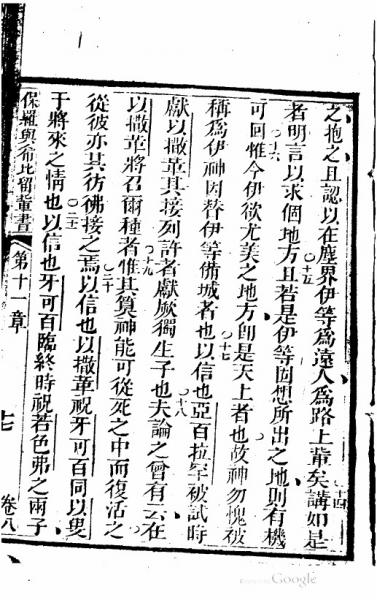 之抱之且認以在塵界伊等為遠人為路上輩矣講如是
十四
者明言以求個地方且若是伊等囬想所出之地則有機
十五
可回惟今伊欲尤美之地方卽是天上者也故神勿愧被
十六
稱為伊神因替伊等備城者也以信也亞百拉罕被試時
十七
獻以撒革其接列許者獻厥獨生子也夫論之會有云在
十八
以撒革將召爾種者惟其算神能可從死之中而復活之
十九
從彼亦其彷彿接之焉以信也以撒革祝牙可百同以叟
二十
于將來之情也以信也牙可百臨終時祝若色弗之兩子
二十一
保羅與希比留輩書
第十一章
卷八
Google